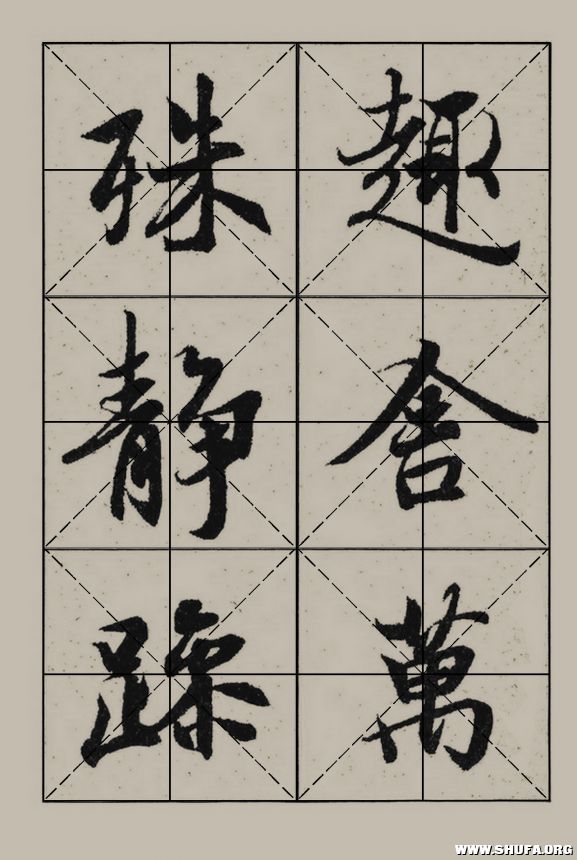 趣舍萬
殊靜躁
WWW.SHUFA.ORG